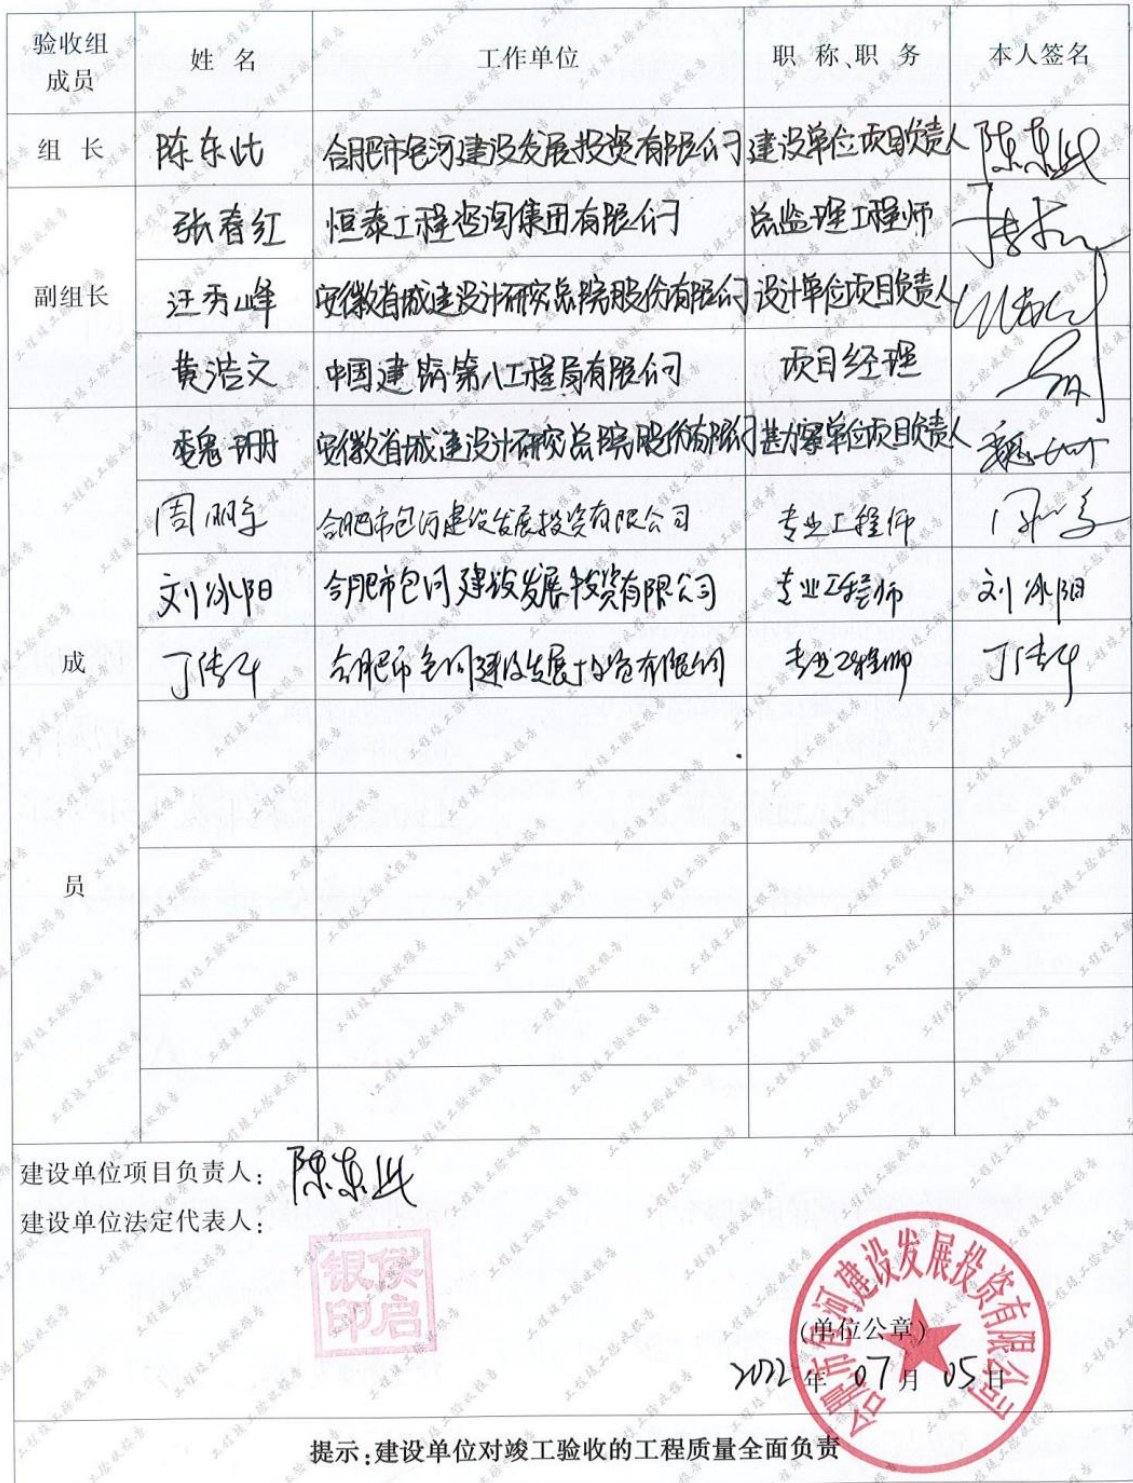 验收组成员 姓 名 工作单位 职 称、职 务 本人签名
组 长 陈东此 合肥市包河建设发展投资有限公司 建设单位项目负责人 陈东此
副组长 张春红 恒泰工程咨询集团有限公司 总监理工程师
汪秀峰 安徽省城建设计研究总院股份有限公司 设计单位项目负责人
黄浩文 中国建筑第八工程局有限公司 项目经理
成员 魏珊 安徽省城建设计研究总院股份有限公司 勘察单位项目负责人 魏
周 合肥市包河建设发展投资有限公司 专业工程师
刘冰阳 合肥市包河建设发展投资有限公司 专业工程师 刘冰阳
丁传 合肥市包河建设发展投资有限公司 专业工程师 丁传
建设单位项目负责人: 陈东此
建设单位法定代表人:
侯启银印
合肥市包河建设发展投资有限公司
(单位公章)
2022年 07月 05日
提示:建设单位对竣工验收的工程质量全面负责
工程竣工验收报告